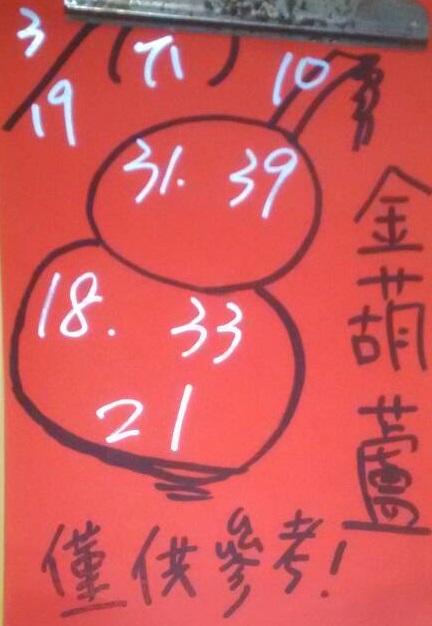 3/19
10
31. 39
18. 33
21
金葫蘆
僅供參考!